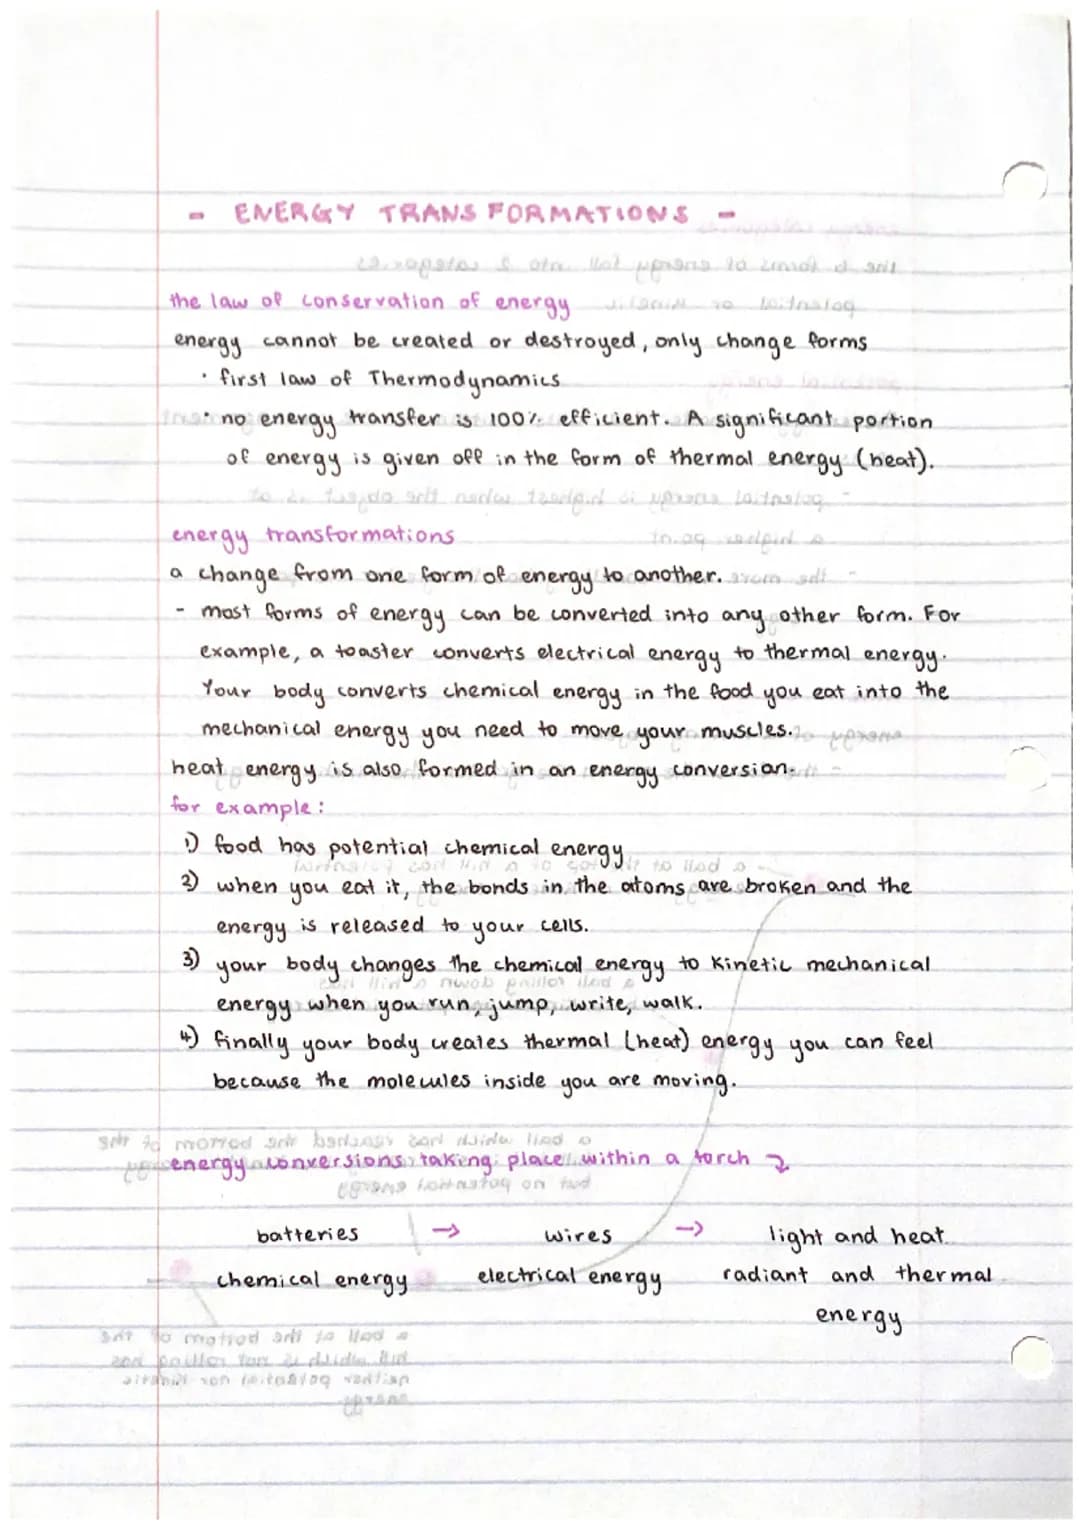 - ENERGY TRANSFORMATIONS -
the law of conservation of energy
energy cannot be created or destroyed, only change forms
• first law of Thermodynamics
• no energy transfer is 100% efficient. A significant portion
of energy is given off in the form of thermal energy (heat).
energy transformations
a change from one form of energy to another.
- most forms of energy can be converted into any other form. For
example, a toaster converts electrical energy to thermal energy.
Your body converts chemical energy in the food you eat into the
mechanical energy you need to move your muscles.
heat energy is also formed in an energy conversion.
for example:
1) food has potential chemical energy
2) when you eat it, the bonds in the atoms are broken and the
energy is released to your cells.
3) your body changes the chemical energy to kinetic mechanical
energy when you run, jump, write, walk.
4) finally your body creates thermal (heat) energy you can feel
because the molecules inside you are moving.
energy conversions taking place within a torch
batteries → wires → light and heat
chemical energy electrical energy radiant and thermal
energy